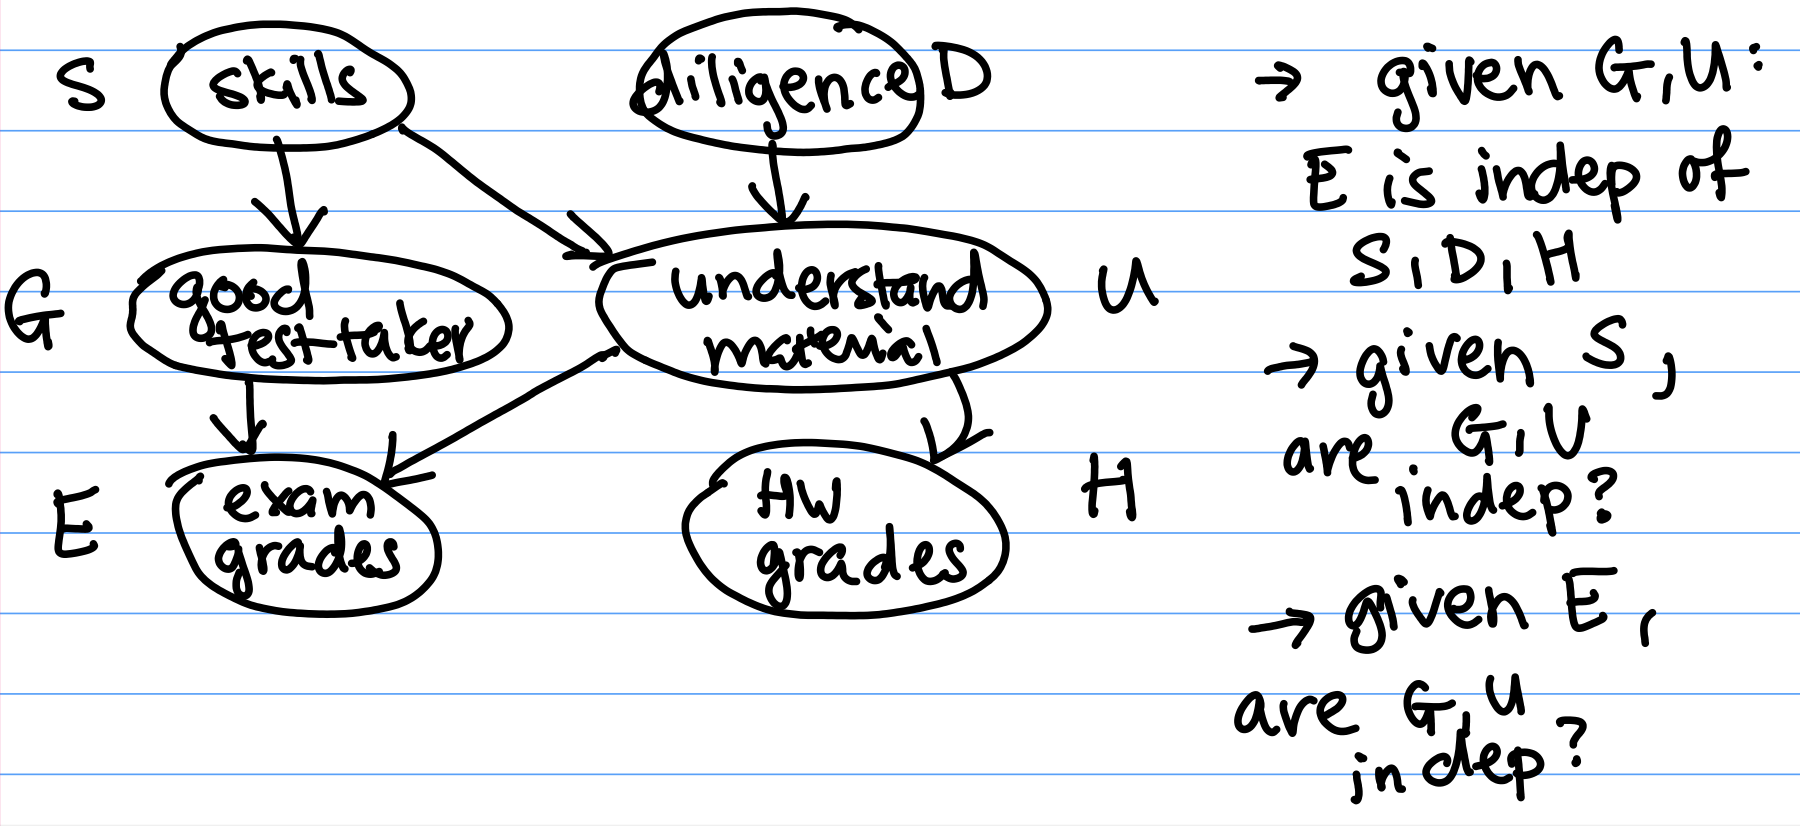 S skills diligence D
G good test-taker understand material U
E exam grades HW grades H
→ given G, U:
E is indep of
S, D, H
→ given S,
are G, U
indep?
→ given E,
are G, U
indep?